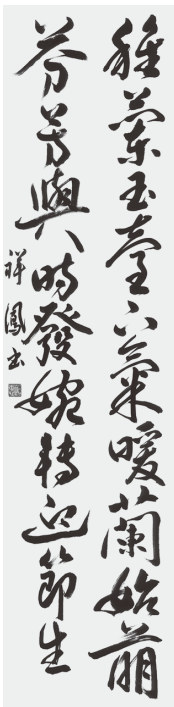 種蘭玉臺下氣暖蘭始萌
芬芳與時發婉轉迎節生
祥鳳書